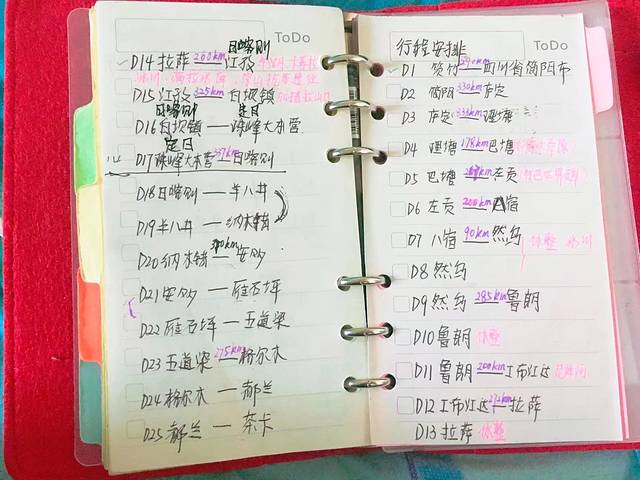 ToDo
日喀则
D14 拉萨 260km 江孜
D15 江孜 325km 白坝镇
日喀则 定日
D16 白坝镇 — 珠峰大本营
定日
D17 珠峰大本营 — 日喀则
D18 日喀则 — 羊八井
D19 羊八井 — 纳木错
D20 纳木错 — 安多
D21 安多 — 雁石坪
D22 雁石坪 — 五道梁
D23 五道梁 275km 格尔木
D24 格尔木 — 都兰
D25 都兰 — 茶卡
ToDo
行程安排
D1 四川省简阳市
D2 简阳 330km 康定
D3 康定 理塘
D4 理塘 178km 巴塘
D5 巴塘 左贡
D6 左贡 200km 八宿
D7 八宿 90km 然乌 休整 冰川
D8 然乌
D9 然乌 285km 鲁朗
D10 鲁朗 休整
D11 鲁朗 200km 工布江达
D12 工布江达 272km 拉萨
D13 拉萨 休整